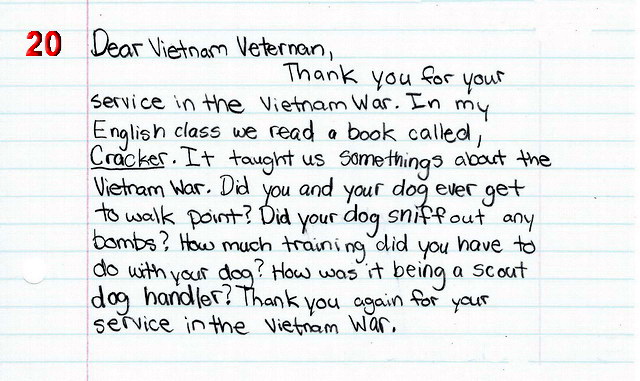 20
Dear Vietnam Veternan,
Thank you for your
service in the Vietnam War. In my
English class we read a book called,
Cracker. It taught us somethings about the
Vietnam War. Did you and your dog ever get
to walk point? Did your dog sniff out any
bombs? How much training did you have to
do with your dog? How was it being a scout
dog handler? Thank you again for your
service in the Vietnam War.